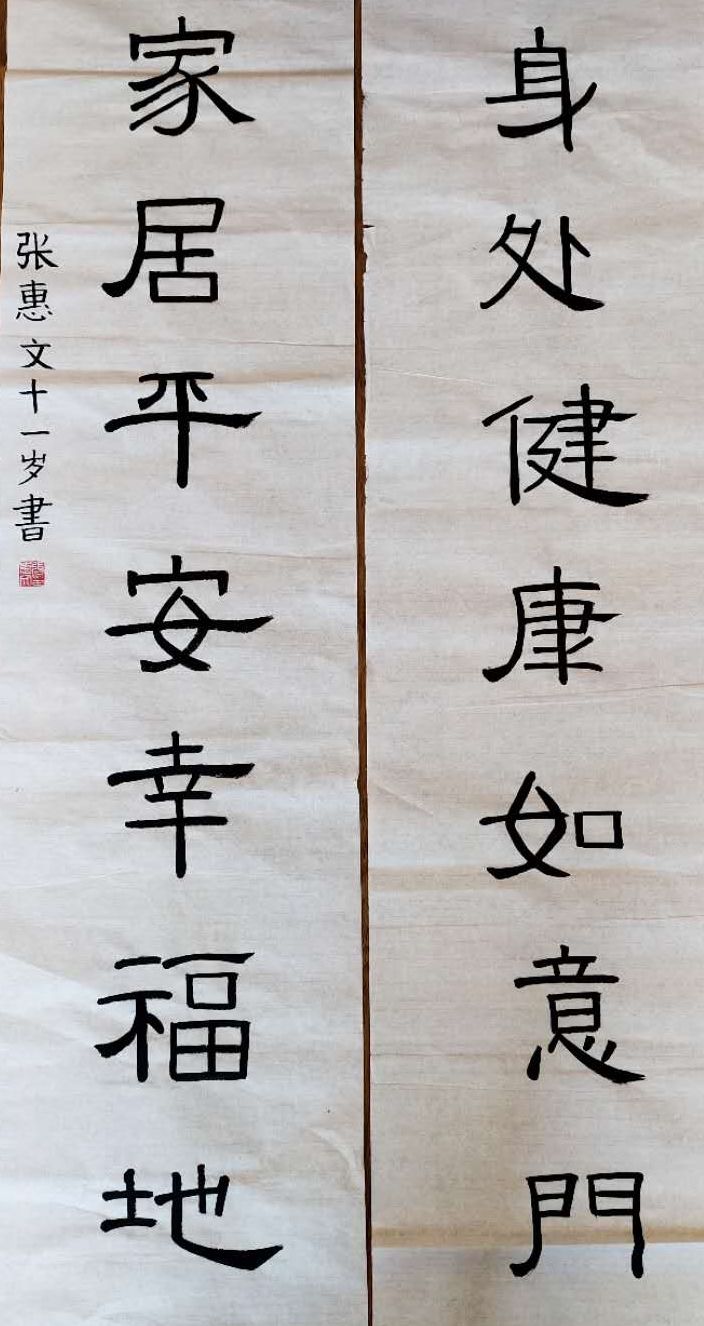 身处健康如意門
家居平安幸福地
张惠文十一岁書